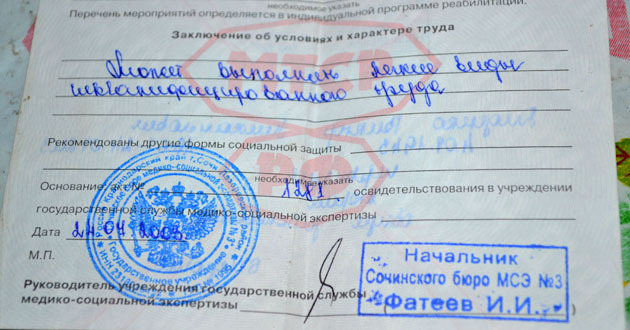 необходимое указать
Перечень мероприятий определяется в индивидуальной программе реабилитации.
Заключение об условиях и характере труда
Может выполнять легкие виды
неквалифицированного труда
МТСР
РФ
Рекомендованы другие формы социальной защиты
необходимое указать
Основание: акт № 1281 освидетельствования в учреждении
государственной службы медико-социальной экспертизы
Дата 24.04.2003
М.П.
Руководитель учреждения государственной службы
медико-социальной экспертизы
Начальник
Сочинского бюро МСЭ №3
Фатеев И.И.
Краснодарский край г.Сочи
Государственное учреждение